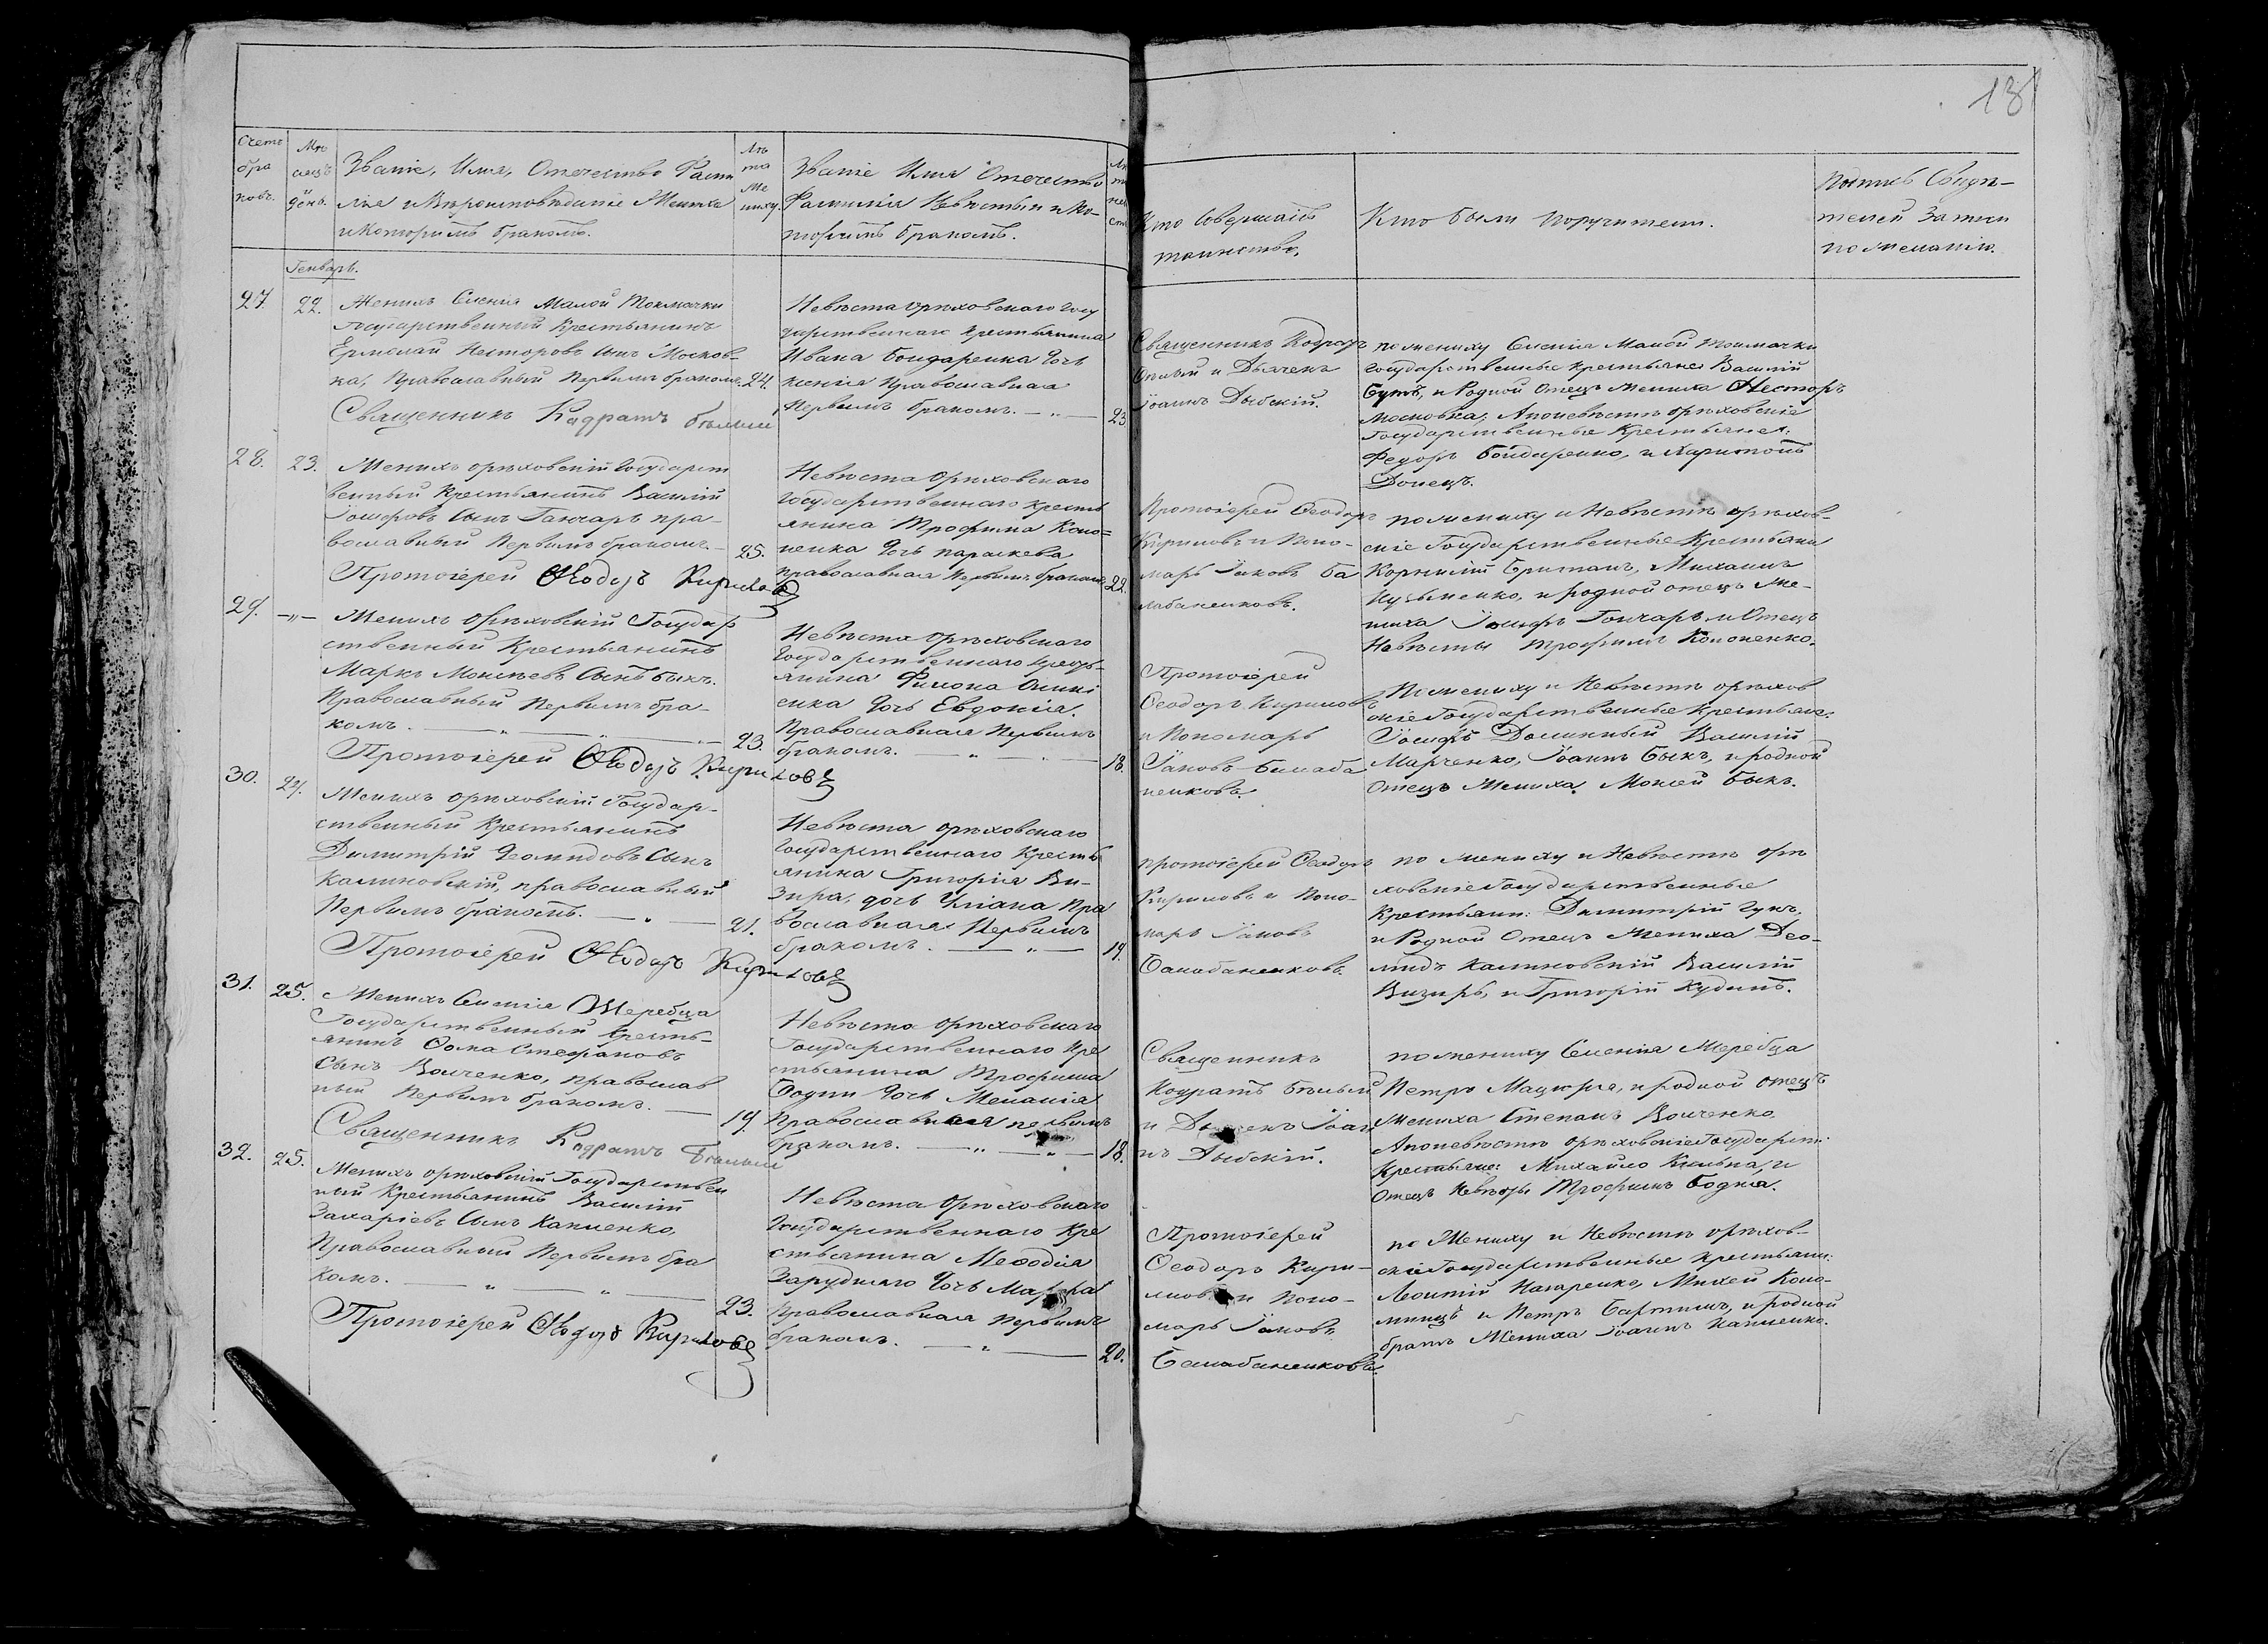 13
Счетъ браковъ.
Мѣсяцъ день.
Званіе, Имя, Отечество Фами
лія и Вѣроисповѣданіе Жениха
и которымъ бракомъ.
Лѣта Жениху.
Званіе Имя Отечество
Фамилія Невѣсты и ко-
торымъ бракомъ.
Кто Совершалъ
таинство.
Кто были поручители.
Подпись Свидѣ-
телей Записи
по желанію.
Генварь.
27. 22.
Женихъ Селенія Малой Токмачки
Государственный Крестьянинъ
Ермолай Несторовъ сынъ Москов-
ка, Православный Первымъ бракомъ. 24.
Священникъ Кодратъ Бѣлый
Невѣста орѣховскаго Госу
дарственнаго крестьянина
Ивана Бондаренка дочь
Ксенія Православная
Первымъ бракомъ. — 23
Священникъ Кодратъ
Бѣлый и Дьячекъ
Іоаннъ Дыбскій.
по жениху Селенія Малой Токмачки
Государственные крестьяне Василій
Бутъ, и Родной Отецъ Жениха Несторъ
Московка, А по невѣстѣ орѣховскіе
Государственные Крестьяне:
Федоръ Бондаренко, и Харитонъ
Донецъ.
28. 23.
Женихъ орѣховскій Государст
венный Крестьянинъ Василій
Іосифовъ Сынъ Ганчаръ пра-
вославный Первымъ бракомъ. — 25.
Протоіерей Ѳеодоръ Кириловъ
Невѣста Орѣховскаго
Государственнаго кресть
янина Трофима Коно-
ненка дочь параскева
православная Первымъ бракомъ 22.
Протоіерей Ѳеодоръ
Кириловъ и Поно-
марь Іаковъ Ба
лабаненковъ.
по жениху и Невѣстѣ орѣхов-
скіе Государственные Крестьяни
Корнилій Британъ, Михаилъ
Кузьменко, и родной отецъ Же-
ниха Іосифъ Гончаръ и Отецъ
Невѣсты Трофимъ Кононенко.
29. —„—
Женихъ Орѣховскій Государ
ственный Крестьянинъ
Маркъ Моисѣевъ Сынъ Быкъ.
Православный Первымъ бра-
комъ. — „ — „ — 23.
Протоіерей Ѳеодоръ Кириловъ
Невѣста Орѣховскаго
Государственнаго Кресть-
янина Филона
енка дочь Евдокія.
Православная Первымъ
бракомъ. — „ — 18.
Протоіерей
Ѳеодоръ Кириловъ
и Пономарь
Іаковъ Балаба
ненковъ.
По жениху и Невѣстѣ орѣхов
скіе Государственные Крестьяне:
Іосифъ Долинный Василій
Марченко, Іоаннъ Быкъ, и родной
Отецъ Жениха Моисей Быкъ.
30. 24.
Женихъ орѣховскій Государ-
ственный Крестьянинъ
Димитрій Деомидовъ Сынъ
Калиновскій, православный
Первымъ бракомъ. — „ — 21.
Протоіерей Ѳеодоръ Кириловъ
Невѣста орѣховскаго
Государственнаго Кресть
янина Григорія Ви-
зира, дочь Уліана Пра
вославная Первымъ
бракомъ. — „ — 19.
протоіерей Ѳеодоръ
Кириловъ и Поно-
марь Іаковъ
Балабаненковъ.
по жениху и Невѣстѣ орѣ
ховскіе Государственные
Крестьяни: Димитрій Гукъ,
и Родной Отецъ Жениха Део-
мидъ Калиновскій Василій
Визирь, и Григорій Худинъ.
31. 25.
Женихъ Селенія Жеребца
Государственный Кресть-
янинъ Ѳома Стефановъ
Сынъ Волченко, православ
ный Первымъ бракомъ. — 19.
Священникъ Кодратъ Бѣлый
Невѣста орѣховскаго
Государственнаго Кре
стьянина Трофима
Бодни дочь Меланія
Православная первымъ
бракомъ. — „ — „ — 18.
Священникъ
Кодратъ Бѣлый
и Дьячекъ Іоан
нъ Дыбскій.
по жениху Селенія Жеребца
Петръ Мацюра, и родной отецъ
Жениха Степанъ Волченко.
А по невѣстѣ орѣховскіе Государст.
Крестьяне: Михайло и
Отецъ Невѣсты Трофимъ Бодня.
32. 25.
Женихъ орѣховскій Государствен
ный Крестьянинъ Василій
Захаріевъ Сынъ Капленко,
Православный Первымъ бра
комъ. — „ — „ — 23.
Протоіерей Ѳеодоръ Кириловъ
Невѣста Орѣховскаго
Государственнаго Кре
стьянина Меѳодія
Заруднаго дочь Марѳа
Православная Первымъ
бракомъ. — „ — 20.
Протоіерей
Ѳеодоръ Кири-
ловъ и Поно-
марь Іаковъ
Балабаненковъ.
по Жениху и Невѣстѣ орѣхов-
скіе Государственные Крестьяни:
Леонтій Назаренко, Михей Коло-
міецъ и Петръ и родной
братъ Жениха Іоаннъ Капленко.